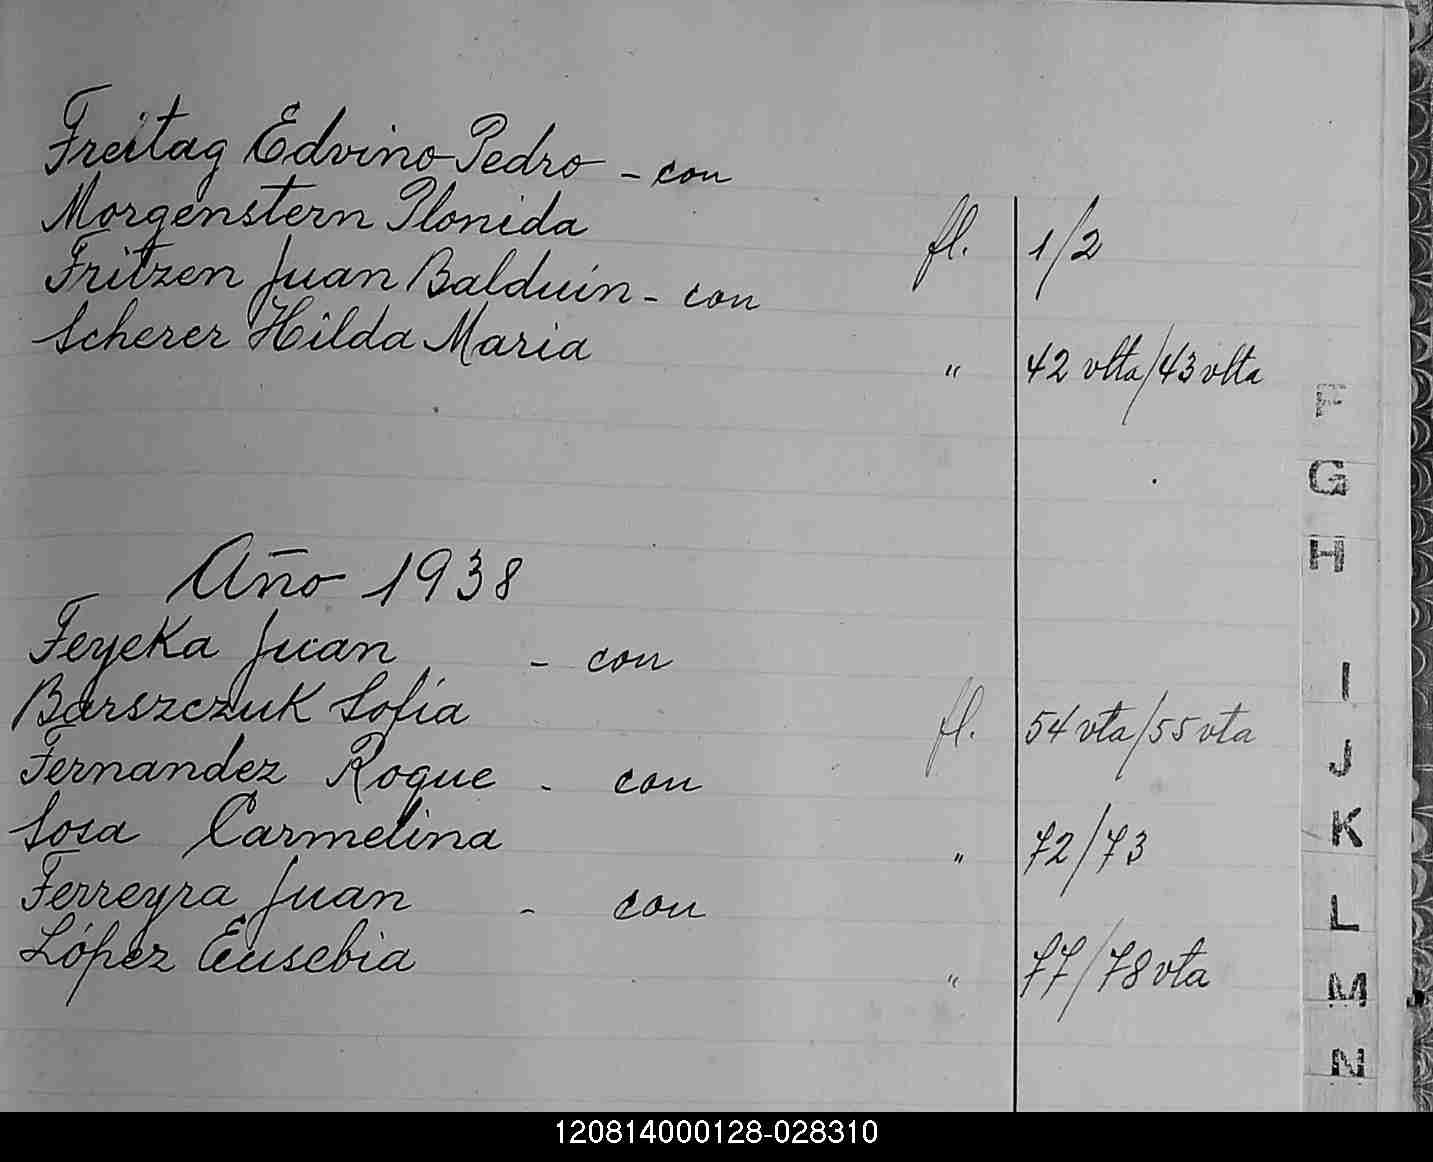 Freitag Edvino Pedro - con
Morgenstern Plonida fl. 1/2
Fritzen Juan Balduin - con
Scherer Hilda Maria " 42 vlta/43 vlta
Año 1938
Feyeka Juan - con
Barszczuk Sofía fl. 54 vta/55 vta
Fernandez Roque - con
Sosa Carmelina " 72/73
Ferreyra Juan - con
López Eusebia " 77/78 vta
F
G
H
I
J
K
L
M
N
120814000128-028310